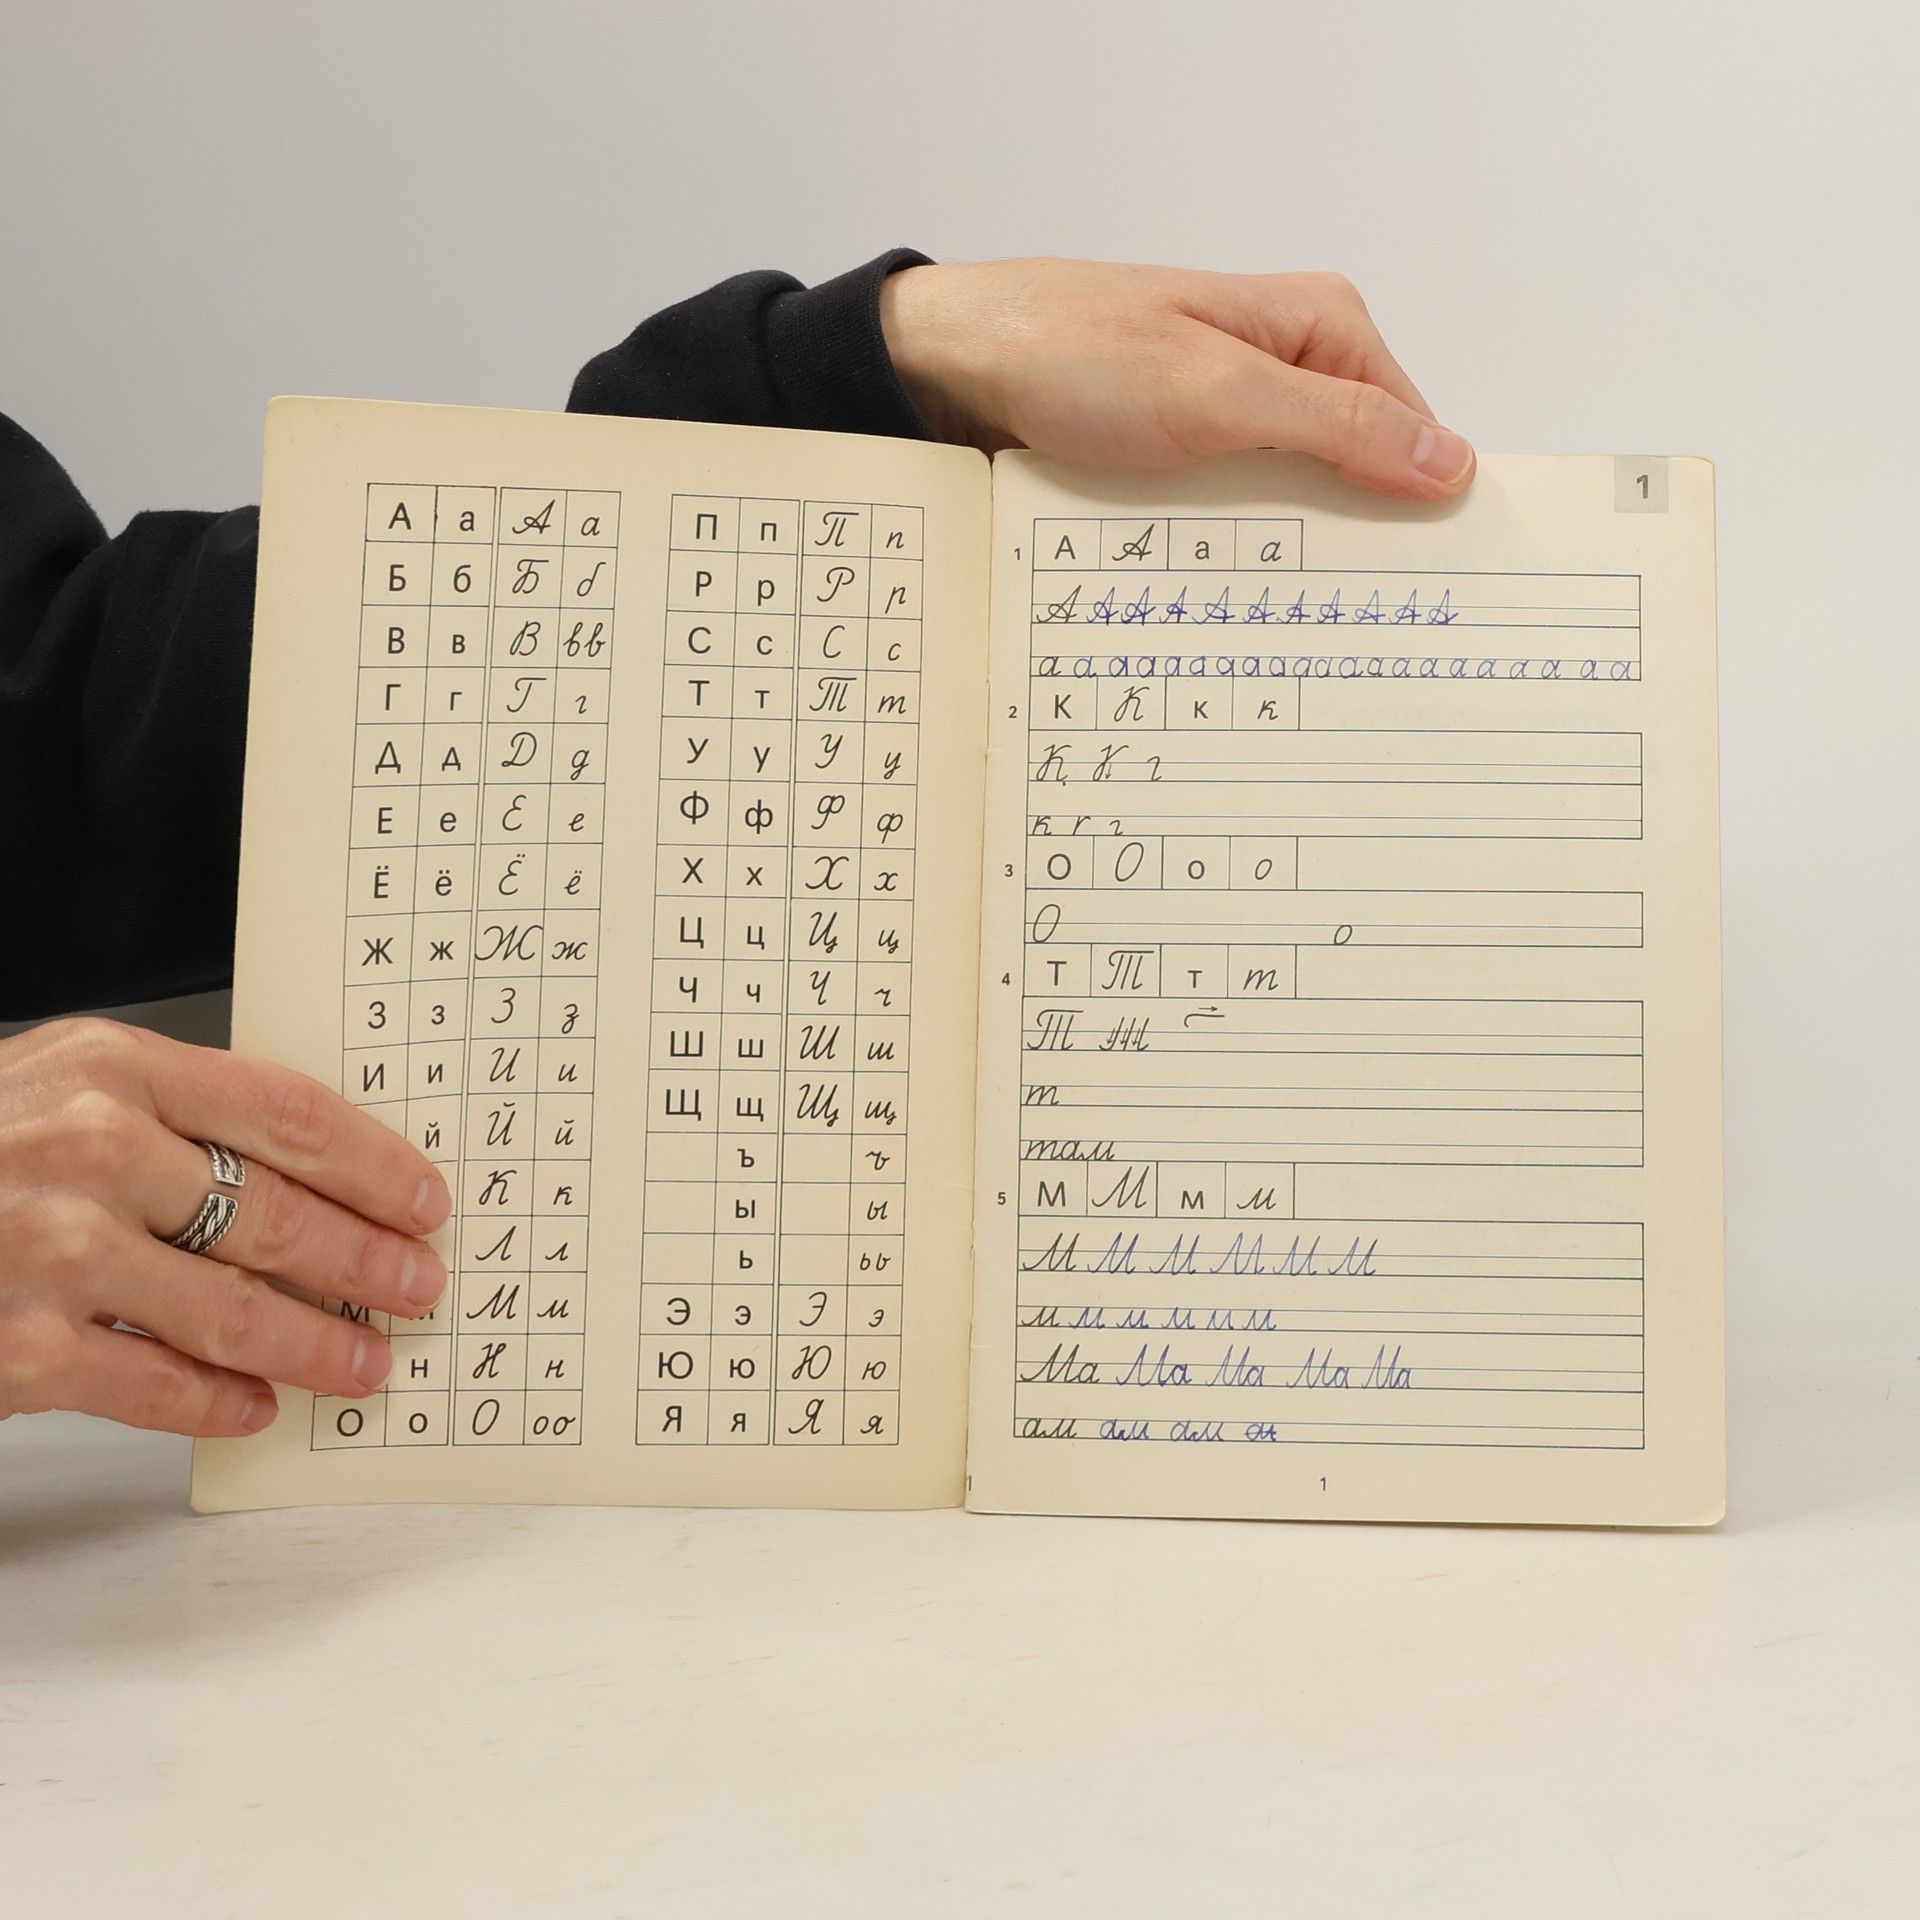 А а А а
Б б Б б
В в В вв
Г г Г г
Д д Д д
Е е Е е
Ё ё Ё ё
Ж ж Ж ж
З з З з
И и И и
й Й й
К к
Л л
М М м
н Н н
О о О оо
П п П п
Р р Р р
С с С с
Т т Т т
У у У у
Ф ф Ф ф
Х х Х х
Ц ц Ц ц
Ч ч Ч ч
Ш ш Ш ш
Щ щ Щ щ
ъ ъ
ы ы
ь ьь
Э э Э э
Ю ю Ю ю
Я я Я я
1
1 А А а а
А А А А А А А А А А А
а а а а а а а а а а а а а а а а а а а а
2 К К к к
К К г
к г г
3 О О о о
О о
4 Т Т т т
Т Т
т
там
5 М М м м
М М М М М М
м м м м м м
Ма Ма Ма Ма Ма
ам ам ам
1